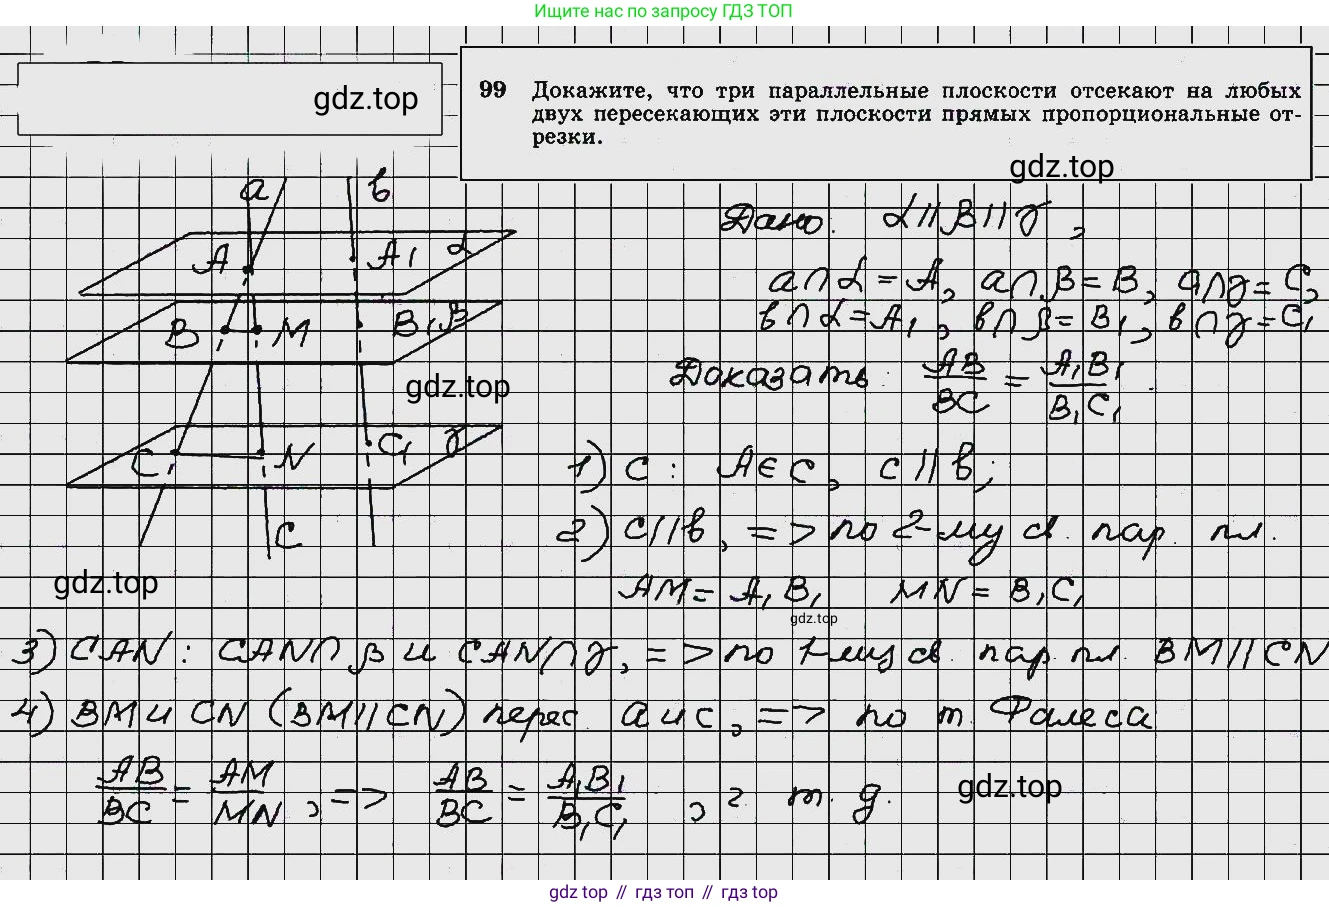 Ищите нас по запросу ГДЗ ТОП
gdz.top
99 Докажите, что три параллельные плоскости отсекают на любых
двух пересекающих эти плоскости прямых пропорциональные от-
резки.
gdz.top
a b
A A₁ α
B M B₁ β
C N C₁ γ
c
gdz.top
gdz.top
Дано: α||β||γ,
a∩α=A, a∩β=B, a∩γ=C,
b∩α=A₁, b∩β=B₁, b∩γ=C₁
Доказать: AB/BC = A₁B₁/B₁C₁.
1) c: A∈c, c||b;
2) c||b, => по 2-му св. пар. пл.
AM=A₁B₁ MN=B₁C₁
gdz.top
3) CAN: CAN∩β и CAN∩γ, => по 1-му св. пар. пл. BM||CN
4) BM и CN (BM||CN) перес. a и c, => по т. Фалеса
AB/BC = AM/MN, => AB/BC = A₁B₁/B₁C₁, ч. т. д.
gdz.top
gdz.top // гдз топ // gdz.top